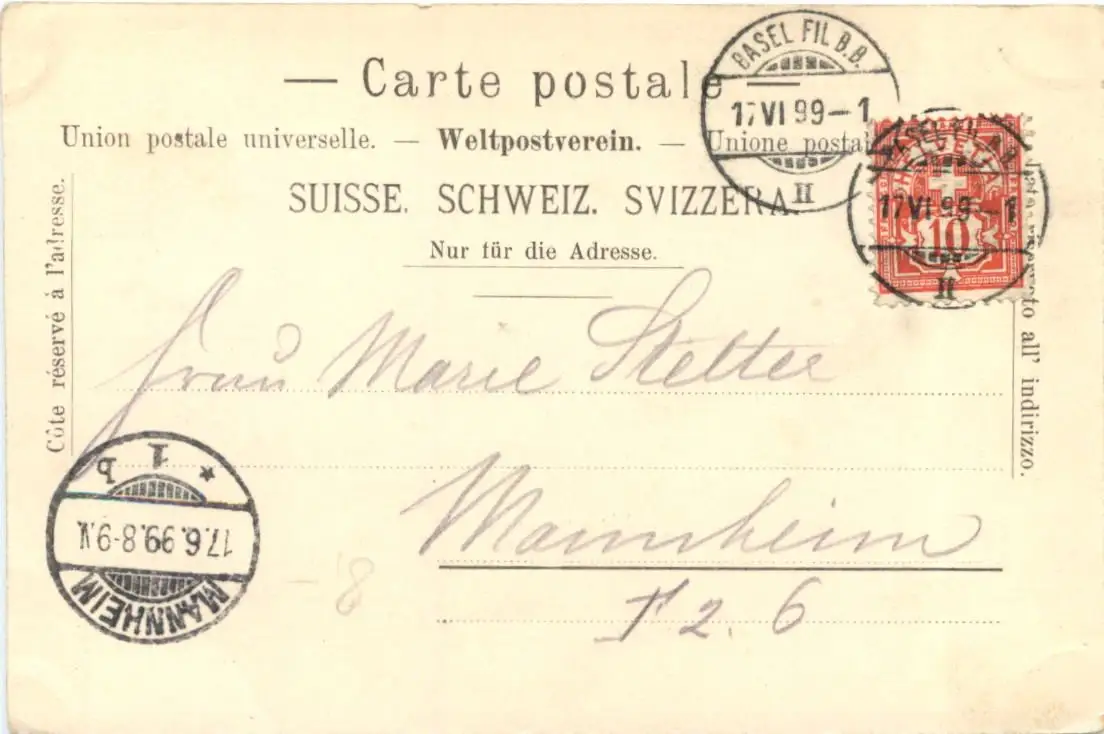 — Carte postale
Union postale universelle. — Weltpostverein. — Unione postal
SUISSE. SCHWEIZ. SVIZZERA.
Nur für die Adresse.
Côte réservé à l'adresse.
all' indirizzo.
BASEL FIL B.B.
17 VI 99-1
II
BASEL FIL B.B.
17 VI 99-1
II
HELVETIA
10
Frau Marie Stelter
Mannheim
F 2. 6
MANNHEIM
17.6.99.8-9.V.
* 1 b
-8